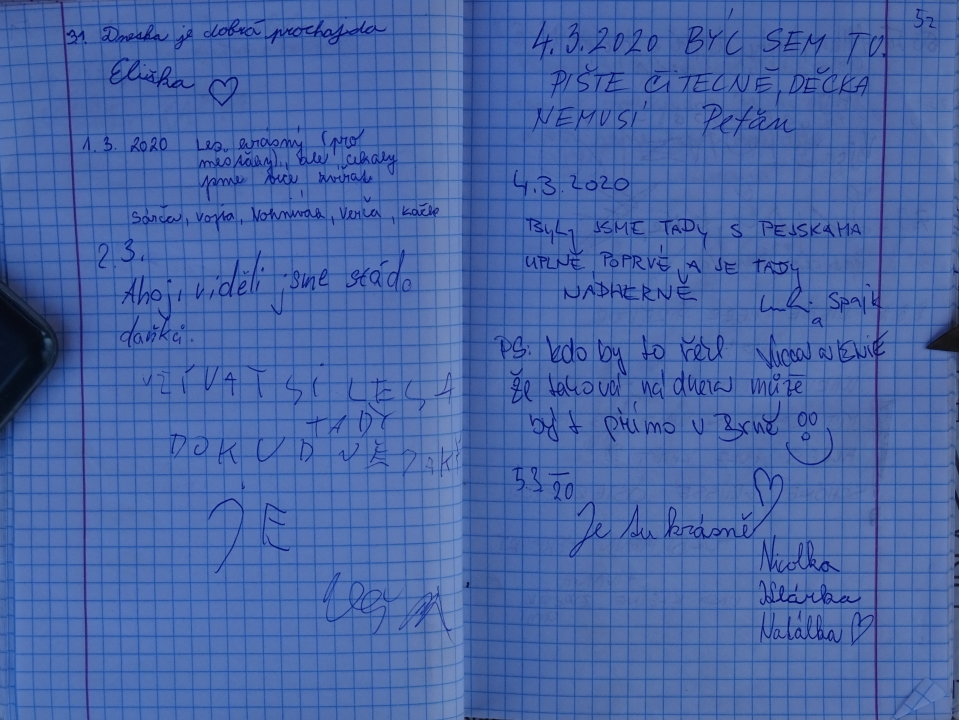 31. Dneska je dobrá procházda
Eliška ♡
1.3. 2020 Les krásný (pro
mesťáky), ale čekaly
jsme více zvířat
Sárča, Vojta, Verča, Káča
2.3.
Ahoj, viděli jsme stádo
daňků.
UŽÍVAT SI LESA
TADY
DOKUD NĚJAKÝ
JE
52
4.3.2020 BYĆ SEM TU.
PIŠTE ČITELNĚ, DĚČKA
NEMUSÍ Peťán
4.3.2020
BYLY JSME TADY S PEJSKAMA
UPLNĚ POPRVÉ A JE TADY
NÁDHERNĚ
a Spajk
PS: kdo by to řekl
že taková nádhera může
být přímo v Brně
5.3 20
Je tu krásně ♡
Nicolka
Klárka
Natálka ♡